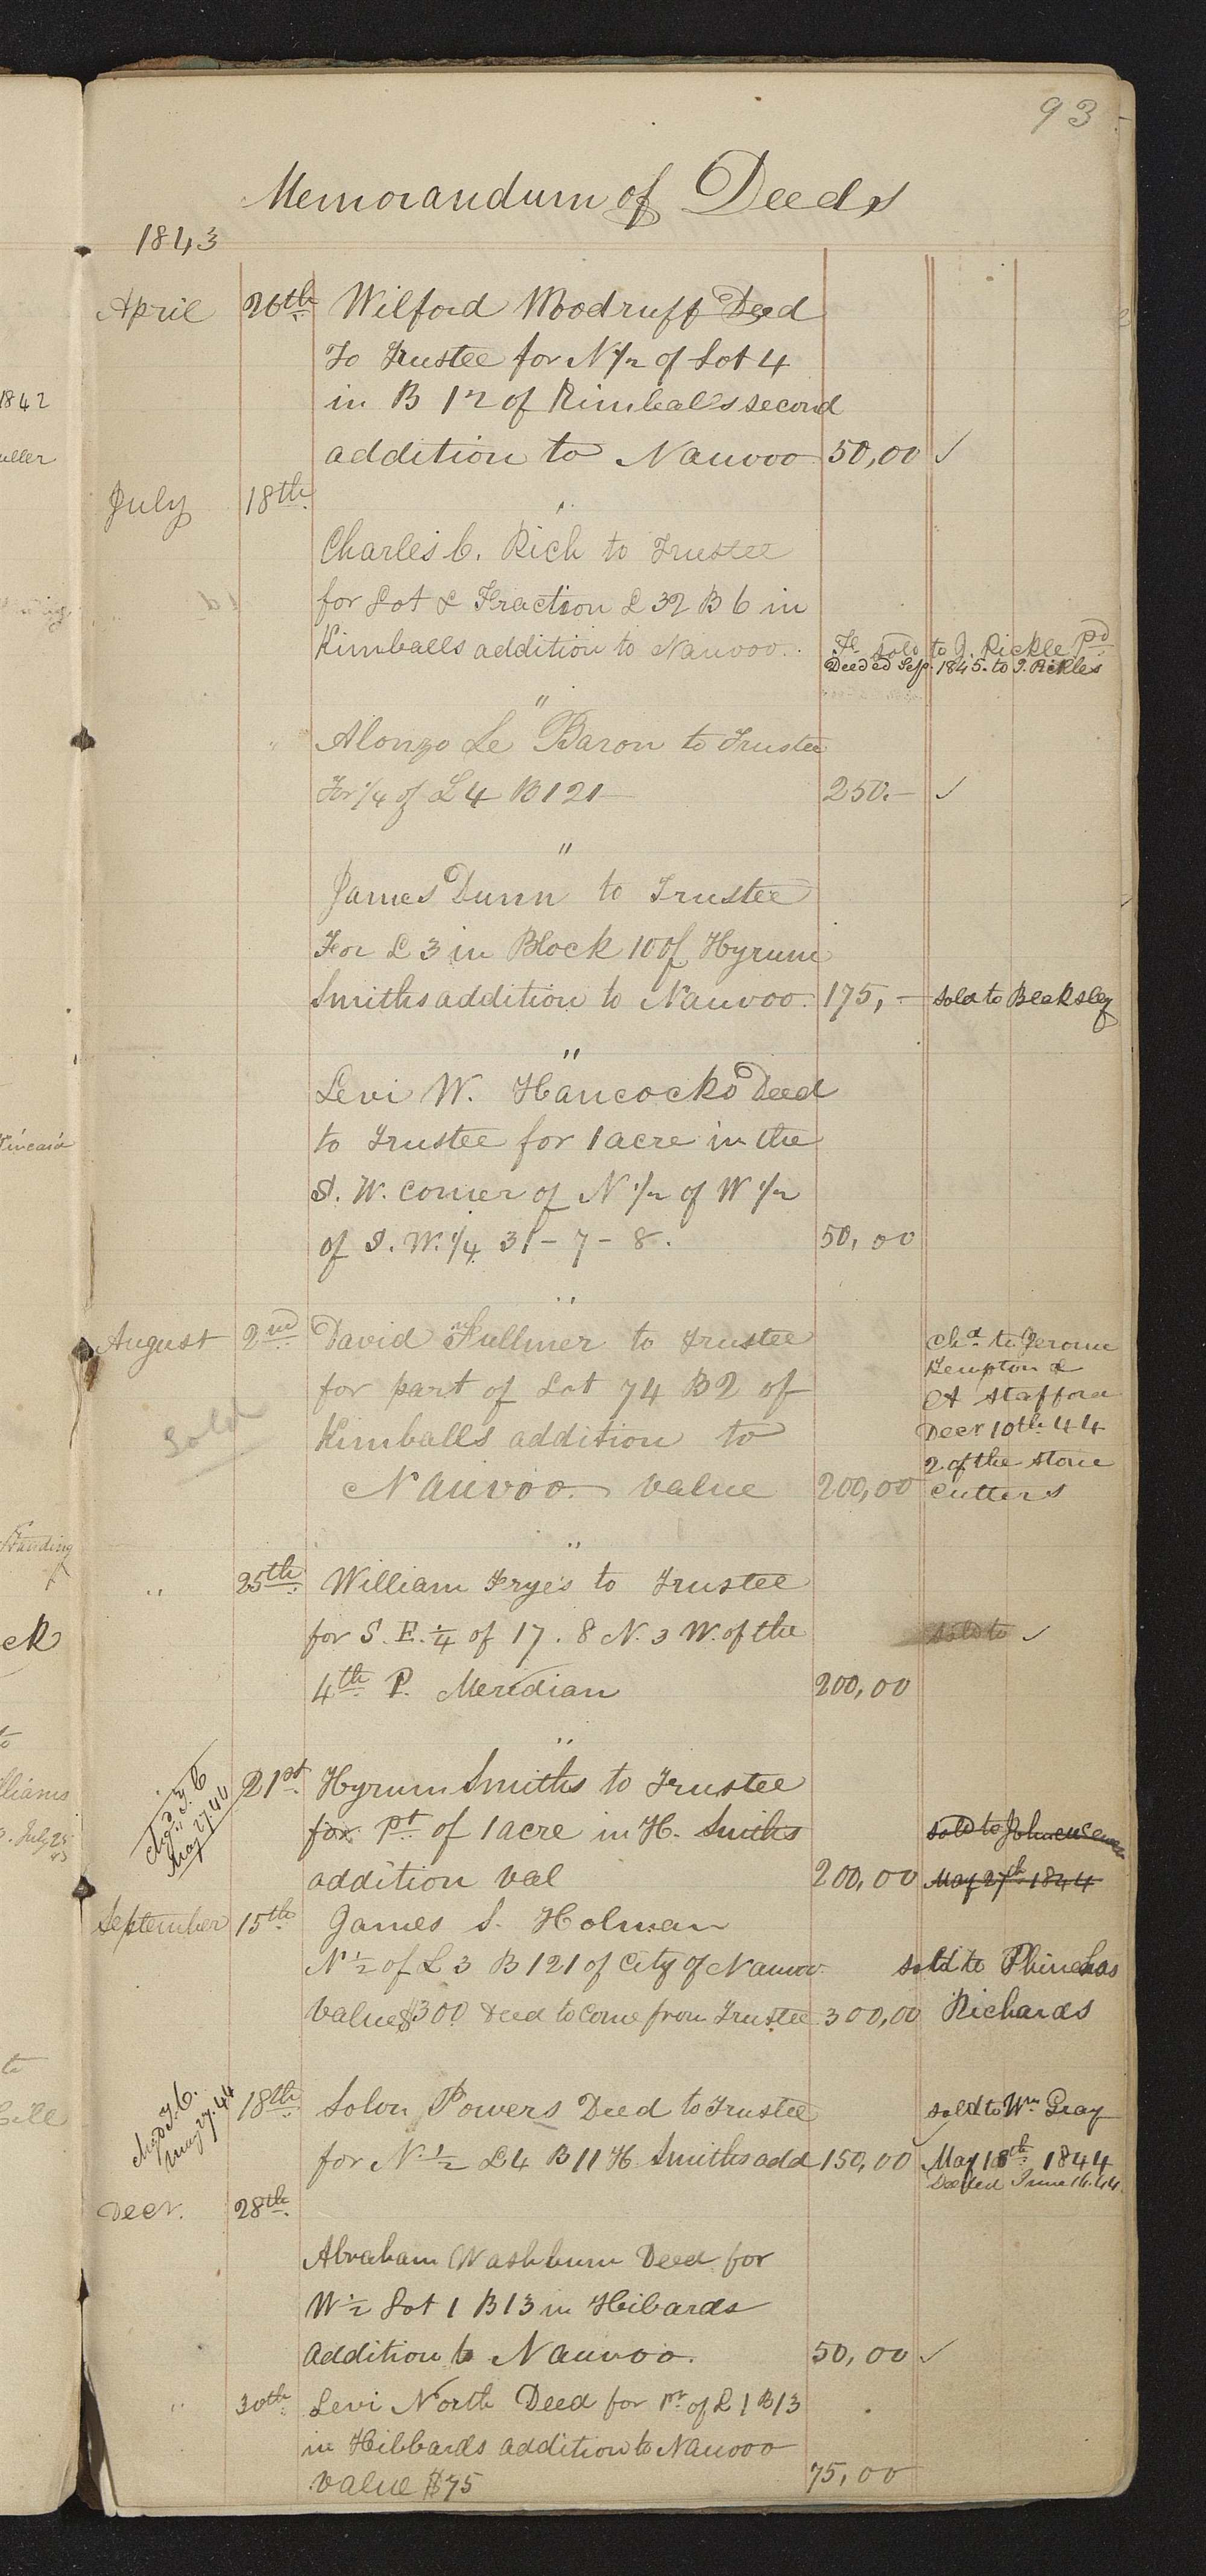 93
Memorandum of Deeds
1843
April 26th Wilford Woodruff Deed
To Trustee for N 1/2 of Lot 4
in B 12 of Kimbals second
addition to Nauvoo 50,00 ✓
1842
uller
July 18th
"
Charles C. Rich to Trustee
for Lot & Fraction L 32 B 6 in
Kimballs addition to Nauvoo. Fr. sold to J. Pickle pd
Deeded Sep. 1845. to J. Pickles
"
" Alonzo Le Baron to Trustee
For 1/4 of L 4 B 121 250.— ✓
"
James Dunn to Trustee
For L 3 in Block 10 of Hyrum
Smiths addition to Nauvoo. 175,— sold to Beaksley
"
Levi W. Hancocks Deed
to Trustee for 1 acre in the
S. W. corner of N 1/2 of W 1/2
of S. W. 1/4 31 – 7 – 8. 50,00
"
August 2nd David Fullmer to trustee
for part of Lot 74 B 2 of
Kimballs addition to
Nauvoo value 200,00
Sold
Chd to Jerome
Kempton &
A Stafford
Decr 10th 44
2 of the stone
cutters
"
" 25th William Fryes to Trustee
for S. E. 1/4 of 17. 8 N. 3 W. of the sold to ✓
4th P. Meridian 200,00
"
Chgd T. C
May 27. 44
21st Hyrum Smiths to Trustee
for pt of 1 acre in H. Smiths sold to
addition val 200,00 May 27th 1844
September 15th James S. Holman
N 1/2 of L 3 B 121 of City of Nauvoo. sold to Phinehas
Value $300 Deed to come from Trustee 300,00 Richards
Chgd T. C.
May 27. 44
18th Solon Powers Deed to Trustee sold to Wm Gray
for N. 1/2 L 4 B 11 H Smiths add 150,00 ✓ May 18th 1844
Deeded June 16. 44
Decr. 28th
Abraham Washburn Deed for
W 1/2 Lot 1 B 13 in Hibards
Addition to Nauvoo. 50,00 ✓
" 30th Levi North Deed for pt of L 1 B 13
in Hibbards addition to Nauvoo
value $75 75,00